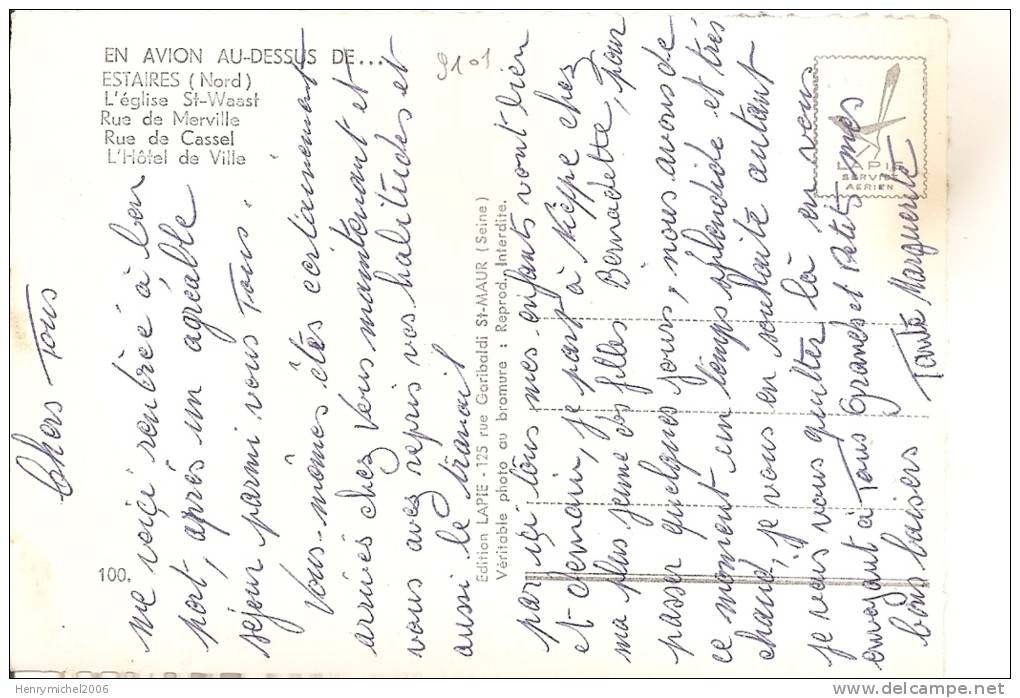 EN AVION AU-DESSUS DE...
ESTAIRES (Nord)
L'église St-Waast
Rue de Merville
Rue de Cassel
L'Hôtel de Ville
100.
Edition LAPIE - 125 rue Garibaldi St-MAUR (Seine)
Véritable photo au bromure : Reprod. Interdite.
LAPIE
SERVICE
AERIEN
Chers Tous
me voiçi rentrée à bon
port, après un agréable
séjour parmi vous Tous.
Vous-mêmes êtes certainement
arrivés chez vous maintenant et
vous avez repris vos habitudes et
aussi le travail
par içi tous mes enfants vont bien
et demain, je part à Nieppe chez
ma plus jeune des filles Bernadette, pour
passer quelques jours, nous avons de
ce moment un temps splendide et très
chaud, je vous en souhaite autant
je vais vous quitter là en vous
envoyant à Tous Grands et Petits mes
bons baisers
Tante Marguerite
Henrymichel2006
delcampe.net